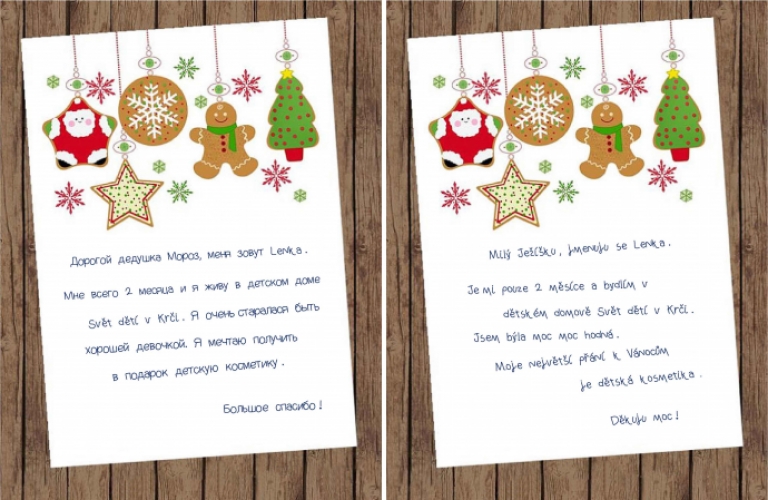 Дорогой дедушка Мороз, меня зовут Lenka.
Мне всего 2 месяца и я живу в детском доме
Svět dětí v Krči. Я очень старалася быть
хорошей девочкой. Я мечтаю получить
в подарок детскую косметику.
Большое спасибо!
Milý Ježíšku, jmenuju se Lenka.
Je mi pouze 2 měsíce a bydlím v
dětském domově Svět dětí v Krči.
Jsem byla moc moc hodná.
Moje největší přání k Vánocům
je dětská kosmetika.
Děkuju moc!